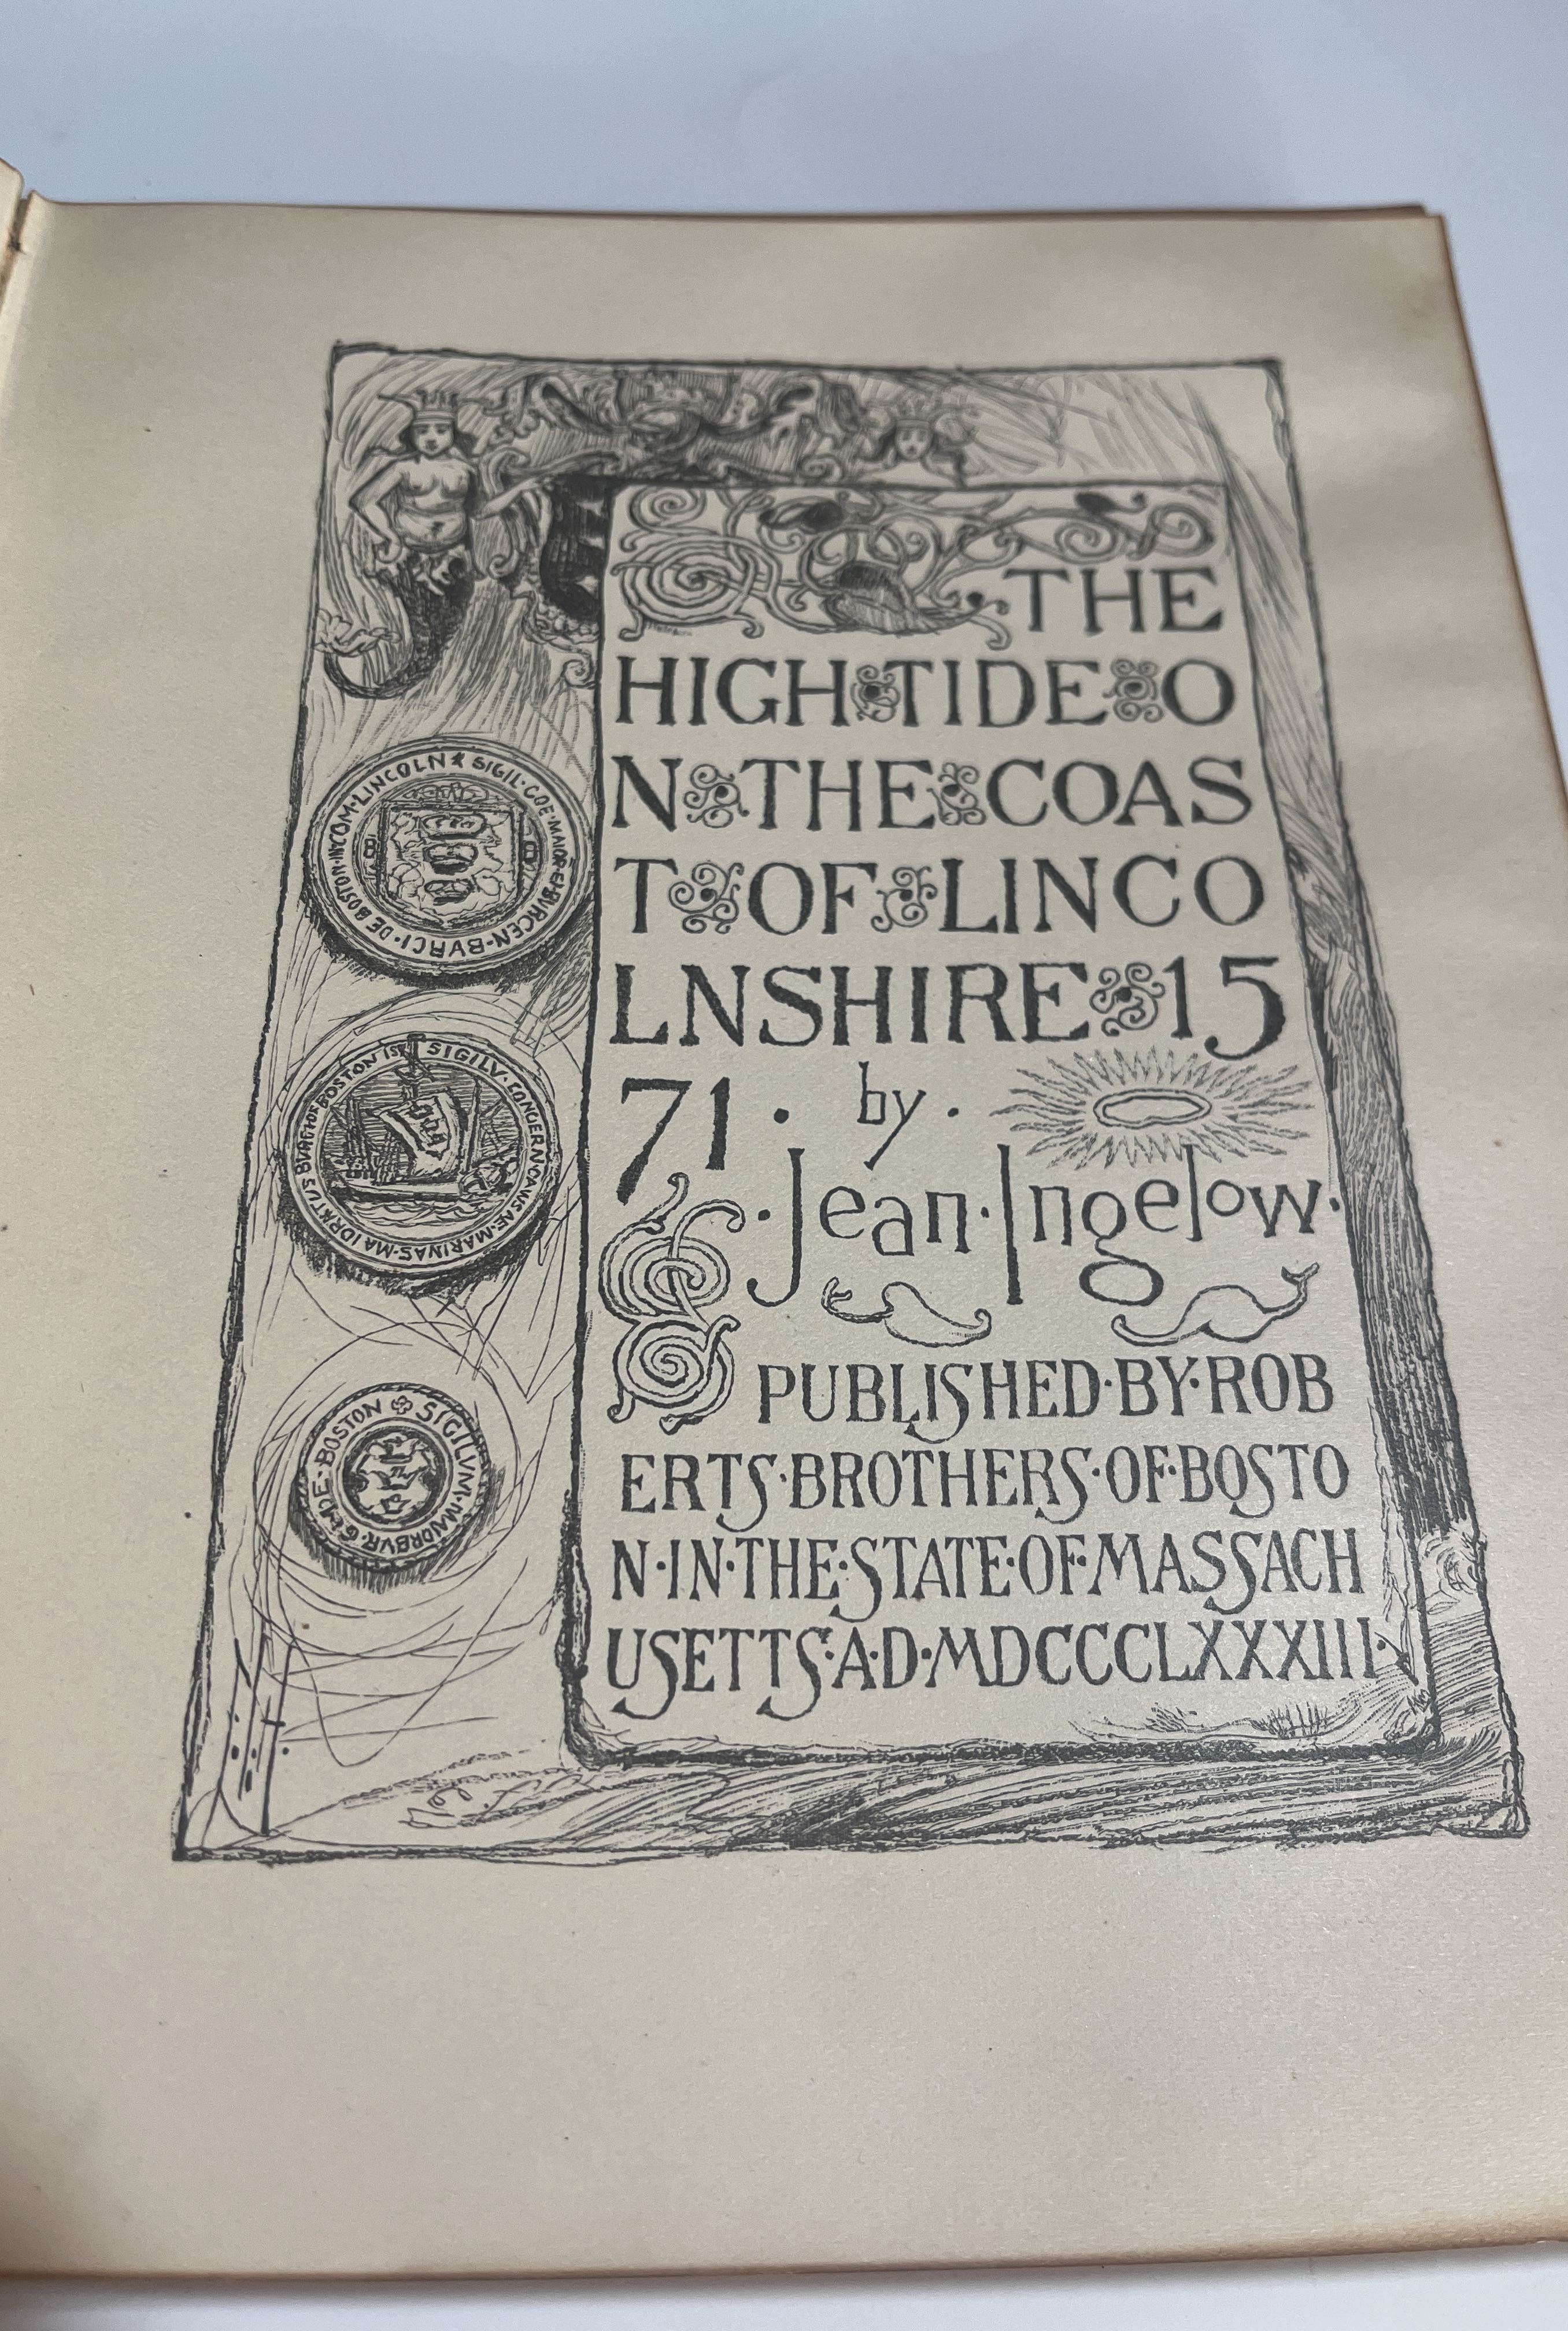 THE
HIGH TIDE O
N THE COAS
T OF LINCO
LNSHIRE 15
71 · by ·
· Jean · Ingelow ·
PUBLISHED · BY · ROB
ERTS · BROTHERS · OF · BOSTO
N · IN · THE · STATE · OF · MASSACH
USETTS · A · D · MDCCCLXXXIII ·
SIGIL · COE · MAIOR · E · BVRGEN · BVRGI · DE BOSTON · IN · COM · LINCOLN
B B
SIGILV · CONCERN · CAVSAE · MARINAS · MAIORATVS BVRGI OF BOSTON
SIGILVM · MAIORBVR · G · E · DE · BOSTON